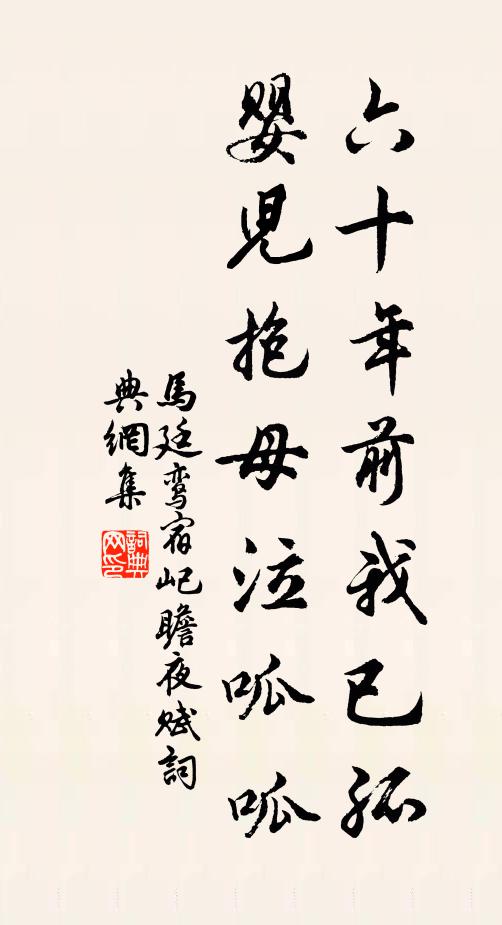 六十年前我已孤
嬰児抱母泣呱呱
馬廷鸞宿屺瞻夜賦詞
典網集
詞典
网印